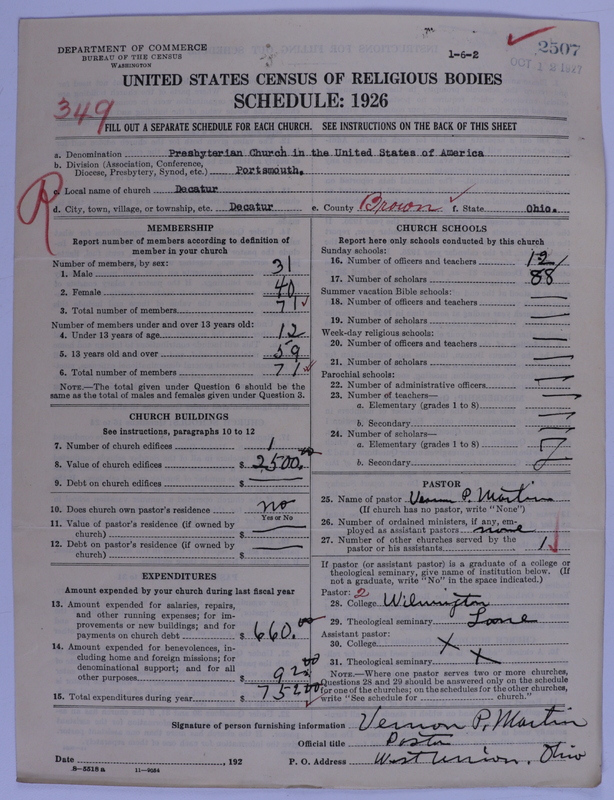 DEPARTMENT OF COMMERCE
BUREAU OF THE CENSUS
WASHINGTON
1-6-2
2507
OCT 12 1927
UNITED STATES CENSUS OF RELIGIOUS BODIES
SCHEDULE: 1926
349
FILL OUT A SEPARATE SCHEDULE FOR EACH CHURCH. SEE INSTRUCTIONS ON THE BACK OF THIS SHEET
R
a. Denomination Presbyterian Church in the United States of America
b. Division (Association, Conference, Diocese, Presbytery, Synod, etc.) Portsmouth.
c. Local name of church Decatur
d. City, town, village, or township, etc. Decatur e. County Brown f. State Ohio.
MEMBERSHIP
Report number of members according to definition of
member in your church
Number of members, by sex:
1. Male 31
2. Female 40
3. Total number of members 71
Number of members under and over 13 years old:
4. Under 13 years of age 12
5. 13 years old and over 59
6. Total number of members 71
NOTE.—The total given under Question 6 should be
same as the total of males and females given under Question 3.
CHURCH BUILDINGS
See instructions, paragraphs 10 to 12
7. Number of church edifices 1
8. Value of church edifices $ 2500.00
9. Debt on church edifices $
10. Does church own pastor's residence? no
Yes or No
11. Value of pastor's residence (if owned by
church) $
12. Debt on pastor's residence (if owned by
church) $
EXPENDITURES
Amount expended by your church during last fiscal year
13. Amount expended for salaries, repairs,
and other running expenses; for im-
provements or new buildings; and for
payments on church debt $ 660.00
14. Amount expended for benevolences, in-
cluding home and foreign missions; for
denominational support; and for all
other purposes $ 92.00
15. Total expenditures during year $ 752.00
CHURCH SCHOOLS
Report here only schools conducted by this church
Sunday schools:
16. Number of officers and teachers 12
17. Number of scholars 88
Summer vacation Bible schools:
18. Number of officers and teachers
19. Number of scholars
Week-day religious schools:
20. Number of officers and teachers
21. Number of scholars
Parochial schools:
22. Number of administrative officers
23. Number of teachers—
a. Elementary (grades 1 to 8)
b. Secondary
24. Number of scholars—
a. Elementary (grades 1 to 8)
b. Secondary
PASTOR
25. Name of pastor Vernon P. Martin
(If church has no pastor, write "None")
26. Number of ordained ministers, if any, em-
ployed as assistant pastors none
27. Number of other churches served by the
pastor or his assistants 1
If pastor (or assistant pastor) is a graduate of a college or
theological seminary, give name of institution below. (If
not a graduate, write "No" in the space indicated.)
Pastor: 2
28. College Wilmington
29. Theological seminary
Assistant pastor:
30. College X
31. Theological seminary X
NOTE.—Where one pastor serves two or more churches,
Questions 28 and 29 should be answered only on the schedule
for one of the churches; on the schedules for the other churches,
write "See schedule for church."
Signature of person furnishing information Vernon P. Martin
Official title Pastor
Date , 192 P. O. Address West Union, Ohio
8-5518 a 11-9084